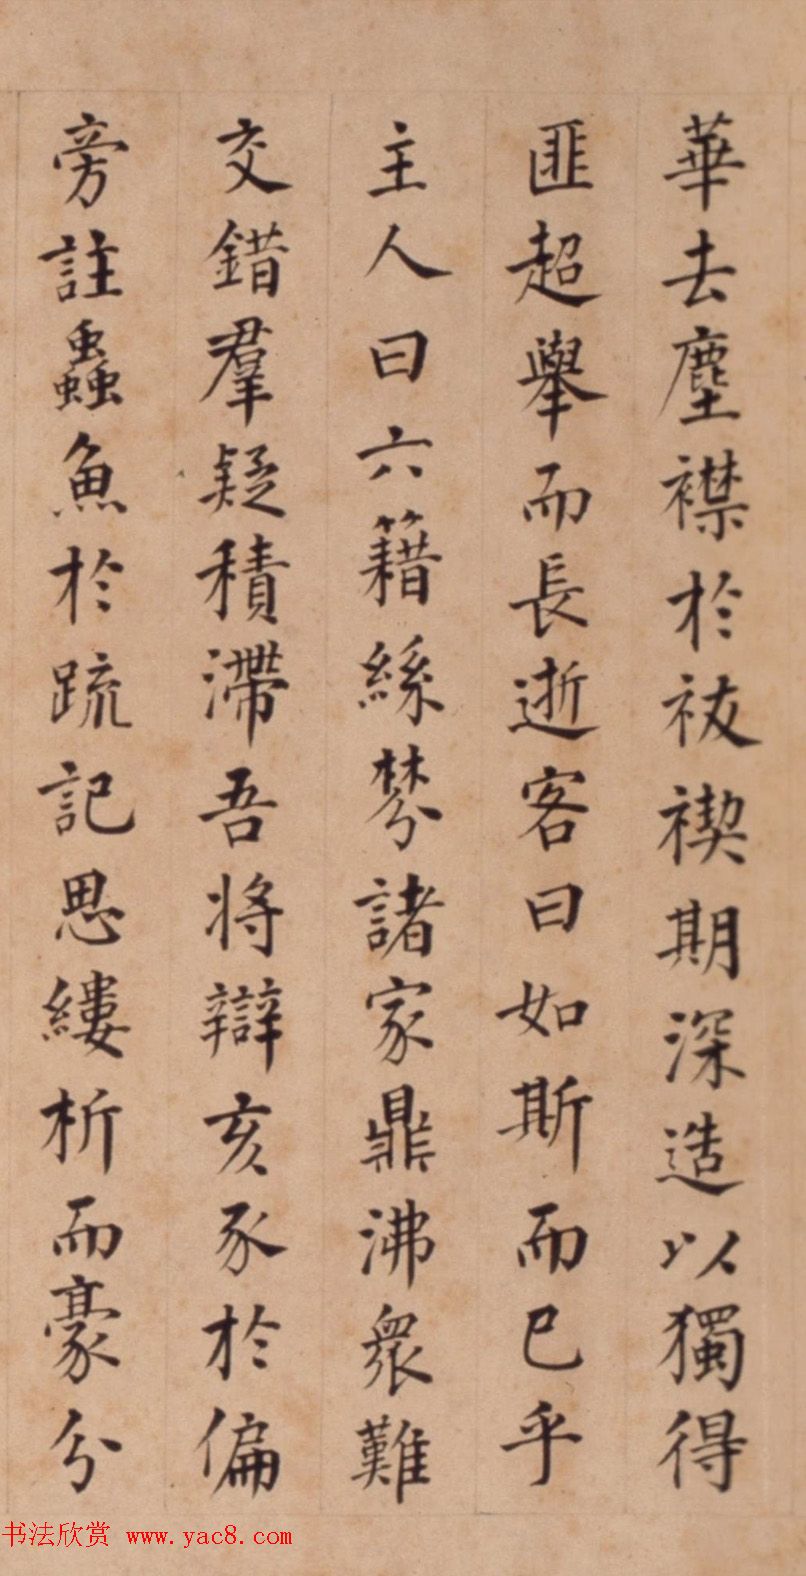 華去塵襟於祓禊期深造以獨得
匪超舉而長逝客曰如斯而已乎
主人曰六籍絲棼諸家鼎沸衆難
交錯羣疑積滯吾將辯亥豕於偏
旁註蟲魚於疏記思縷析而豪分
书法欣赏 www.yac8.com